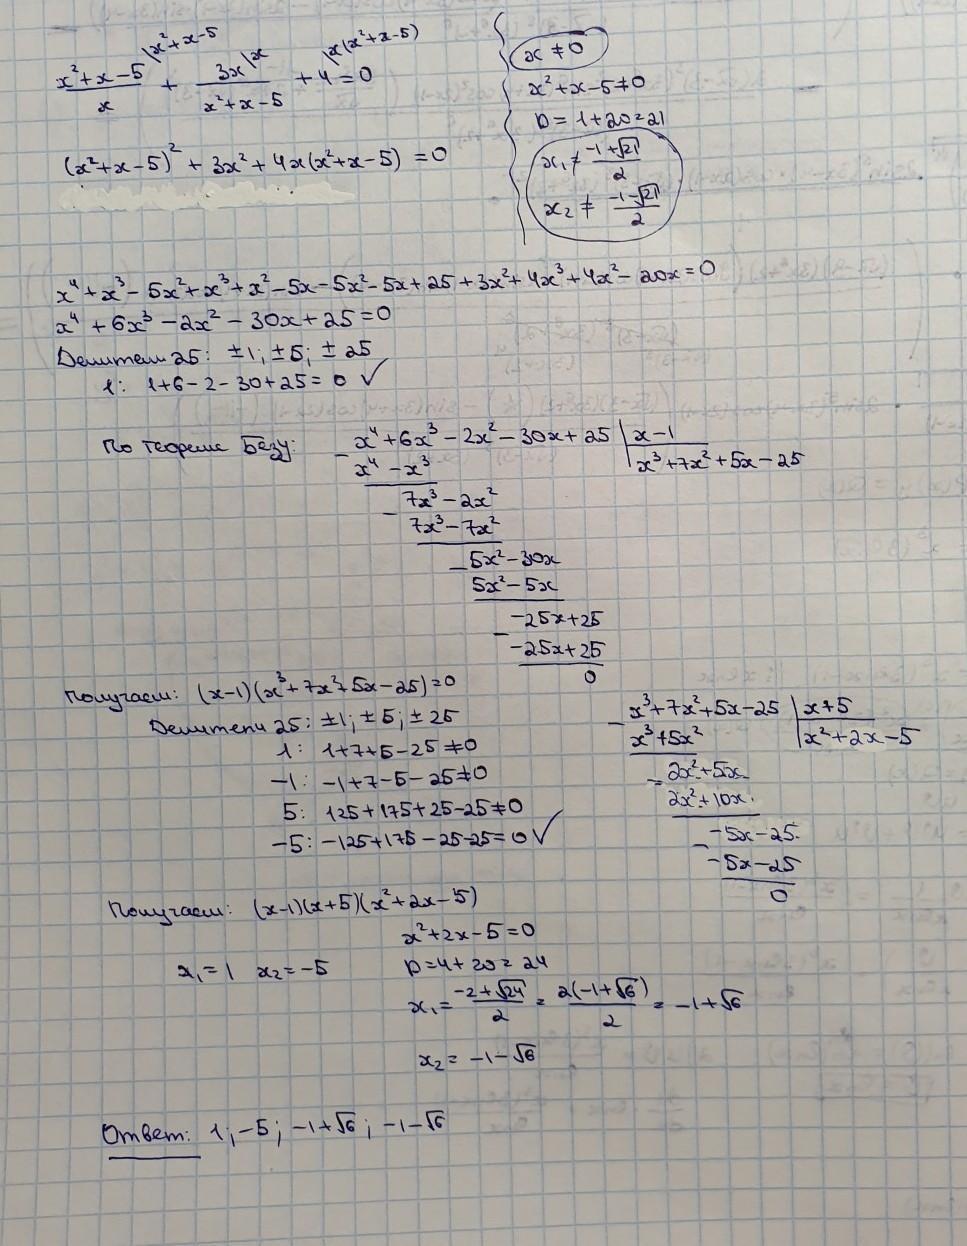 \x²+x-5 \x \x(x²+x-5)
(x²+x-5)/x + 3x/(x²+x-5) + 4 = 0
(x²+x-5)² + 3x² + 4x(x²+x-5) = 0
x ≠ 0
x²+x-5≠0
D = 1+20=21
x₁ ≠ (-1+√21)/2
x₂ ≠ (-1-√21)/2
x⁴+x³-5x²+x³+x²-5x-5x²-5x+25+3x²+4x³+4x²-20x=0
x⁴+6x³-2x²-30x+25=0
Делители 25: ±1; ±5; ±25
1: 1+6-2-30+25=0 ✓
По теореме Безу:
x⁴+6x³-2x²-30x+25 | x-1
x⁴-x³ | x³+7x²+5x-25
7x³-2x²
7x³-7x²
5x²-30x
5x²-5x
-25x+25
-25x+25
0
Получаем: (x-1)(x³+7x²+5x-25)=0
Делители 25: ±1; ±5; ±25
1: 1+7+5-25≠0
-1: -1+7-5-25≠0
5: 125+175+25-25≠0
-5: -125+175-25-25=0 ✓
x³+7x²+5x-25 | x+5
x³+5x² | x²+2x-5
2x²+5x
2x²+10x
-5x-25
-5x-25
0
Получаем: (x-1)(x+5)(x²+2x-5)
x²+2x-5=0
x₁=1 x₂=-5
D=4+20=24
x₁=(-2+√24)/2=2(-1+√6)/2=-1+√6
x₂=-1-√6
Ответ: 1; -5; -1+√6; -1-√6